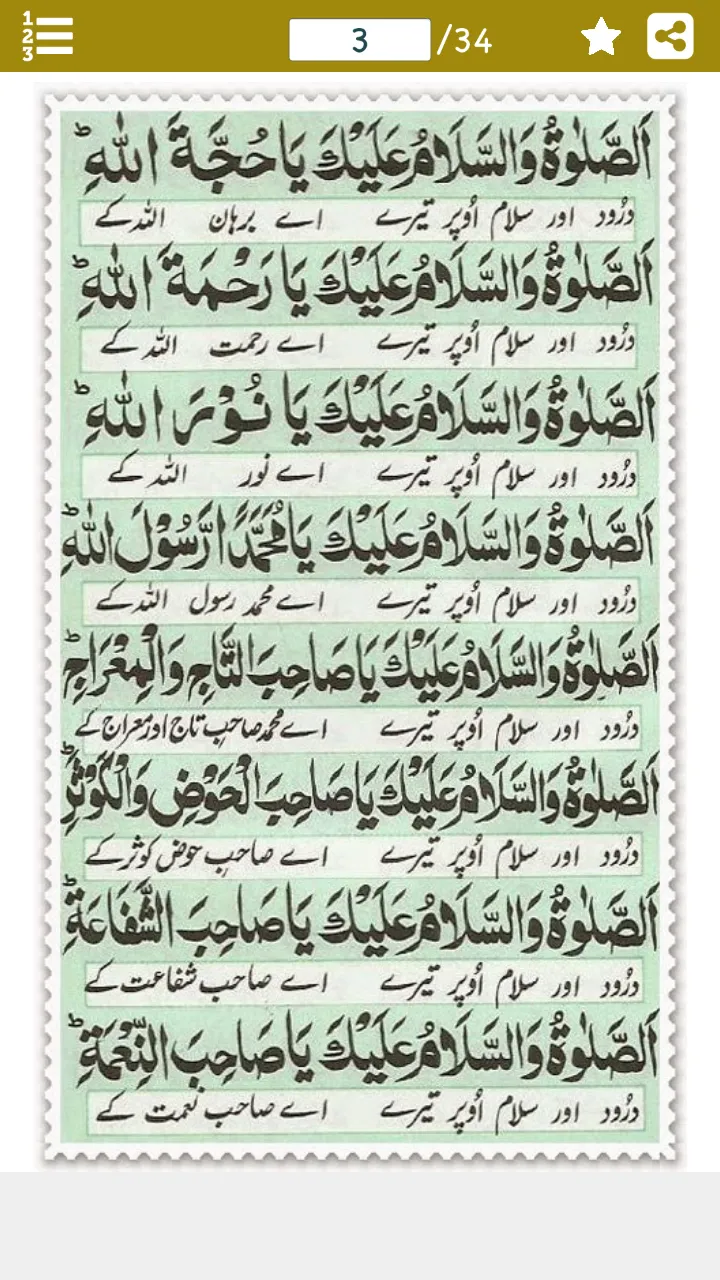 1
2
3
3 /34
اَلصَّلٰوةُ وَالسَّلَامُ عَلَيْكَ يَا حُجَّةَ اللّٰهِ ؕ
درُود اور سلام اُوپر تیرے اے برہان اللہ کے
اَلصَّلٰوةُ وَالسَّلَامُ عَلَيْكَ يَا رَحْمَةَ اللّٰهِ ؕ
درُود اور سلام اُوپر تیرے اے رحمت اللہ کے
اَلصَّلٰوةُ وَالسَّلَامُ عَلَيْكَ يَا نُوْرَ اللّٰهِ ؕ
درُود اور سلام اُوپر تیرے اے نور اللہ کے
اَلصَّلٰوةُ وَالسَّلَامُ عَلَيْكَ يَا مُحَمَّدًا رَّسُوْلَ اللّٰهِ ؕ
درُود اور سلام اُوپر تیرے اے محمد رسول اللہ کے
اَلصَّلٰوةُ وَالسَّلَامُ عَلَيْكَ يَا صَاحِبَ التَّاجِ وَالْمِعْرَاجِ ؕ
درُود اور سلام اُوپر تیرے اے محمد صاحب تاج اور معراج کے
اَلصَّلٰوةُ وَالسَّلَامُ عَلَيْكَ يَا صَاحِبَ الْحَوْضِ وَالْكَوْثَرِ ؕ
درُود اور سلام اُوپر تیرے اے صاحب حوض کوثر کے
اَلصَّلٰوةُ وَالسَّلَامُ عَلَيْكَ يَا صَاحِبَ الشَّفَاعَةِ ؕ
درُود اور سلام اُوپر تیرے اے صاحب شفاعت کے
اَلصَّلٰوةُ وَالسَّلَامُ عَلَيْكَ يَا صَاحِبَ النِّعْمَةِ ؕ
درُود اور سلام اُوپر تیرے اے صاحب نعمت کے